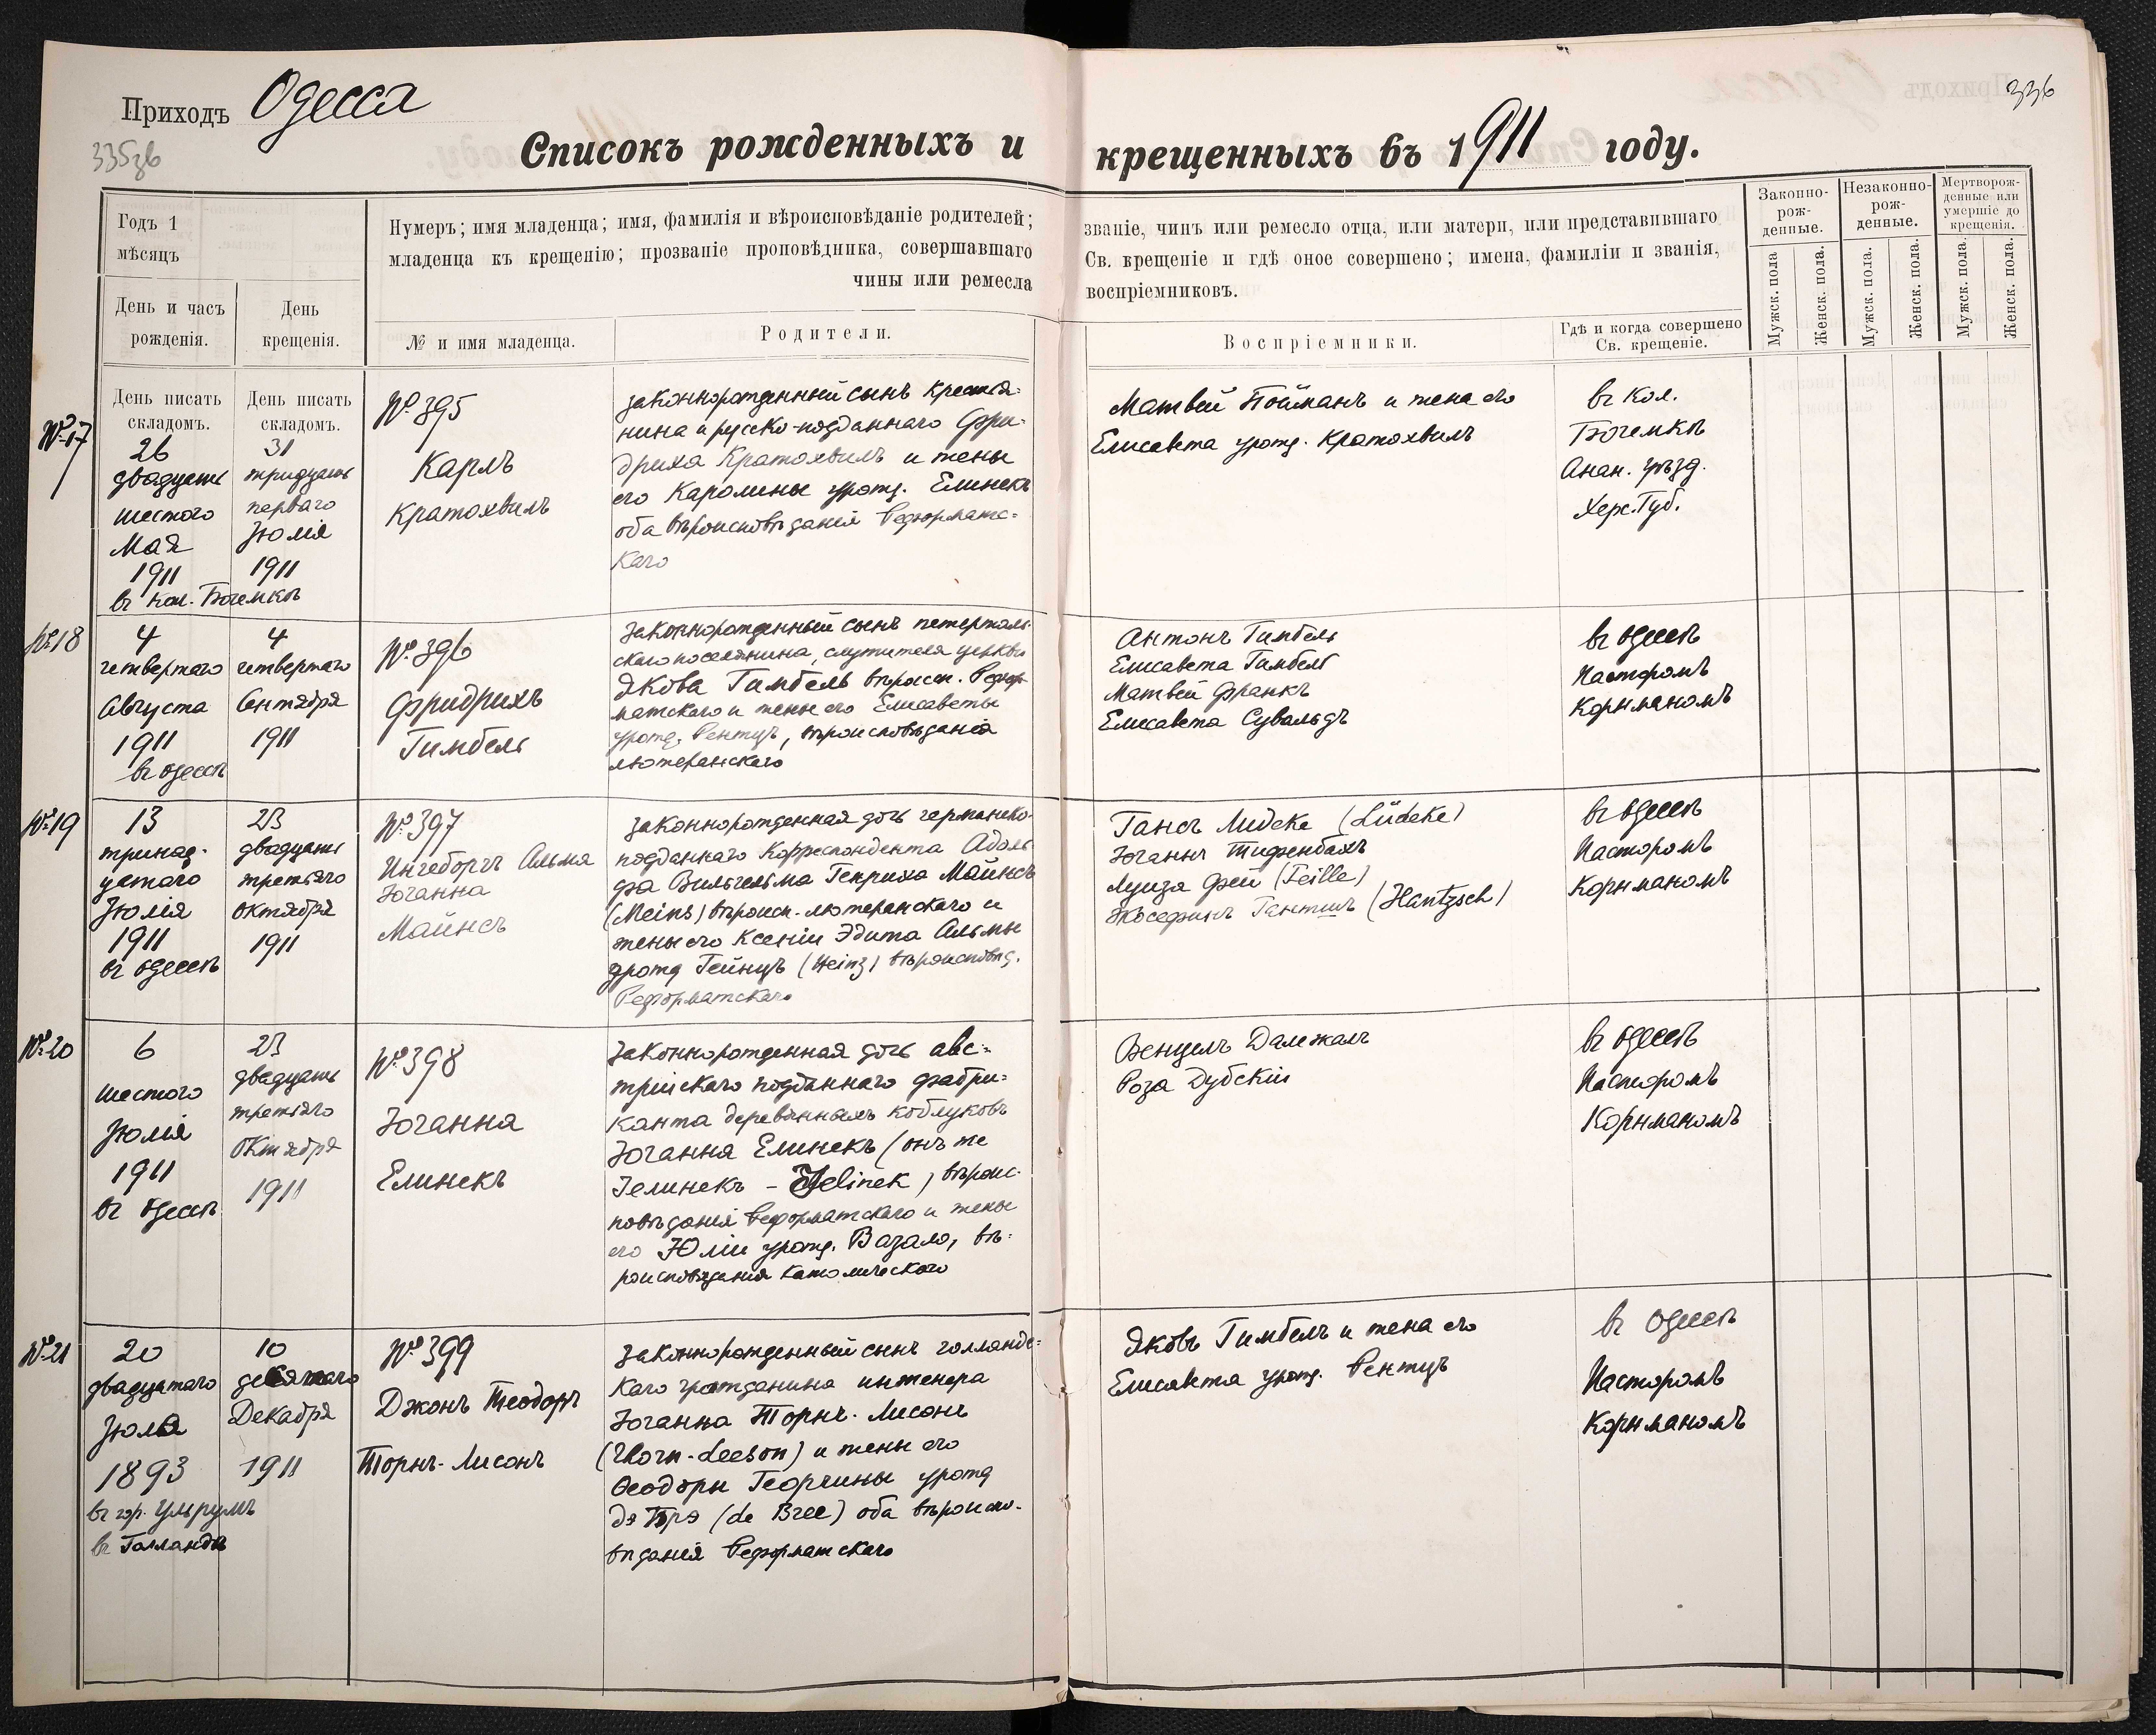 Приходъ Одесса
335об
336
Списокъ рожденныхъ и крещенныхъ въ 1911 году.
Годъ 1
мѣсяцъ
День и часъ
рожденія.
День
крещенія.
Нумеръ; имя младенца; имя, фамилія и вѣроисповѣданіе родителей;
младенца къ крещенію; прозваніе проповѣдника, совершавшаго
чины или ремесла
№ и имя младенца.
Родители.
званіе, чинъ или ремесло отца, или матери, или представившаго
Св. крещеніе и гдѣ оное совершено; имена, фамиліи и званія,
воспріемниковъ.
Воспріемники.
Гдѣ и когда совершено
Св. крещеніе.
Законно-
рож-
денные.
Незаконно-
рож-
денные.
Мертворож-
денные или
умершіе до
крещенія.
Мужск. пола
Женск. пола.
Мужск. пола.
Женск. пола.
Мужск. пола.
Женск. пола.
День писать
складомъ.
День писать
складомъ.
№17
26
двадцать
шестого
Мая
1911
въ кол. Богемкѣ
31
тридцать
перваго
Іюлія
1911
№ 395
Карлъ
Кратохвилъ
законнорожденный сынъ крестья-
нина и русско-подданнаго Фри-
дриха Кратохвилъ и жены
его Каролины урожд. Елинекъ
оба вѣроисповѣданія Реформатс-
каго
Матвей Пойманъ и жена его
Елисавета урожд. Кратохвилъ
въ Кол.
Богемкѣ
Анан. уѣзд.
Херс. Губ.
№18
4
четвертаго
Августа
1911
въ Одессѣ
4
четвертаго
Сентября
1911
№ 396
Фридрихъ
Гимбель
Законнорожденный сынъ петерталь-
скаго поселянина, служителя церкви
Якова Гимбель вѣроисп. Рефор-
матскаго и жены его Елисаветы
урожд. Рентцъ, вѣроисповѣданія
лютеранскаго
Антонъ Гимбель
Елисавета Гимбель
Матвей Франкъ
Елисавета Сувальдъ
въ Одессѣ
Пасторомъ
Корнманомъ
№19
13
тринад-
цатаго
Іюлія
1911
въ Одессѣ
23
двадцать
третьяго
Октября
1911
№ 397
Ингеборгъ Альма
Іоганна
Майнсъ
Законнорожденная дочь германско-
подданнаго Корреспондента Адоль
фа Вильгельма Генриха Майнсъ
(Meins) вѣроисп. лютеранскаго и
жены его Ксеніи Эдита Альмы
урожд Гейнцъ (Heinz) вѣроисповѣд.
Реформатскаго
Гансъ Лидеке (Lüdeke)
Іоганнъ Тифенбахъ
Луиза Фей (Feille)
Жосефинъ Гантшъ (Hantzsch)
въ Одессѣ
Пасторомъ
Корнманомъ
№20
6
шестого
Іюлія
1911
въ Одессѣ
23
двадцать
третьяго
Октября
1911
№ 398
Іоганна
Елинекъ
Законнорожденная дочь авс-
трійскаго подданнаго фабри-
канта деревянныхъ коблуковъ
Іоганна Елинекъ (онъ же
Іелинекъ – Jelinek) вѣроис-
повѣданія Реформатскаго и жены
его Юліи урожд. Вазало, вѣ-
роисповѣданія католическаго
Венцелъ Далежалъ
Роза Дубскій
въ Одессѣ
Пасторомъ
Корнманомъ
№21
20
двадцатаго
Іюля
1893
въ гор. Ульрумъ
въ Голландіи
10
десятаго
Декабря
1911
№ 399
Джонъ Теодоръ
Торнъ-Лисонъ
Законнорожденный сынъ голландс-
каго гражданина инженера
Іоганна Торнъ-Лисонъ
(Thorn-Leeson) и жены его
Ѳеодоры Георгины урожд
дэ Брэ (de Bree) оба вѣроиспо-
вѣданія Реформатскаго
Яковъ Гимбелъ и жена его
Елисавета урожд. Рентцъ
въ Одессѣ
Пасторомъ
Корнманомъ